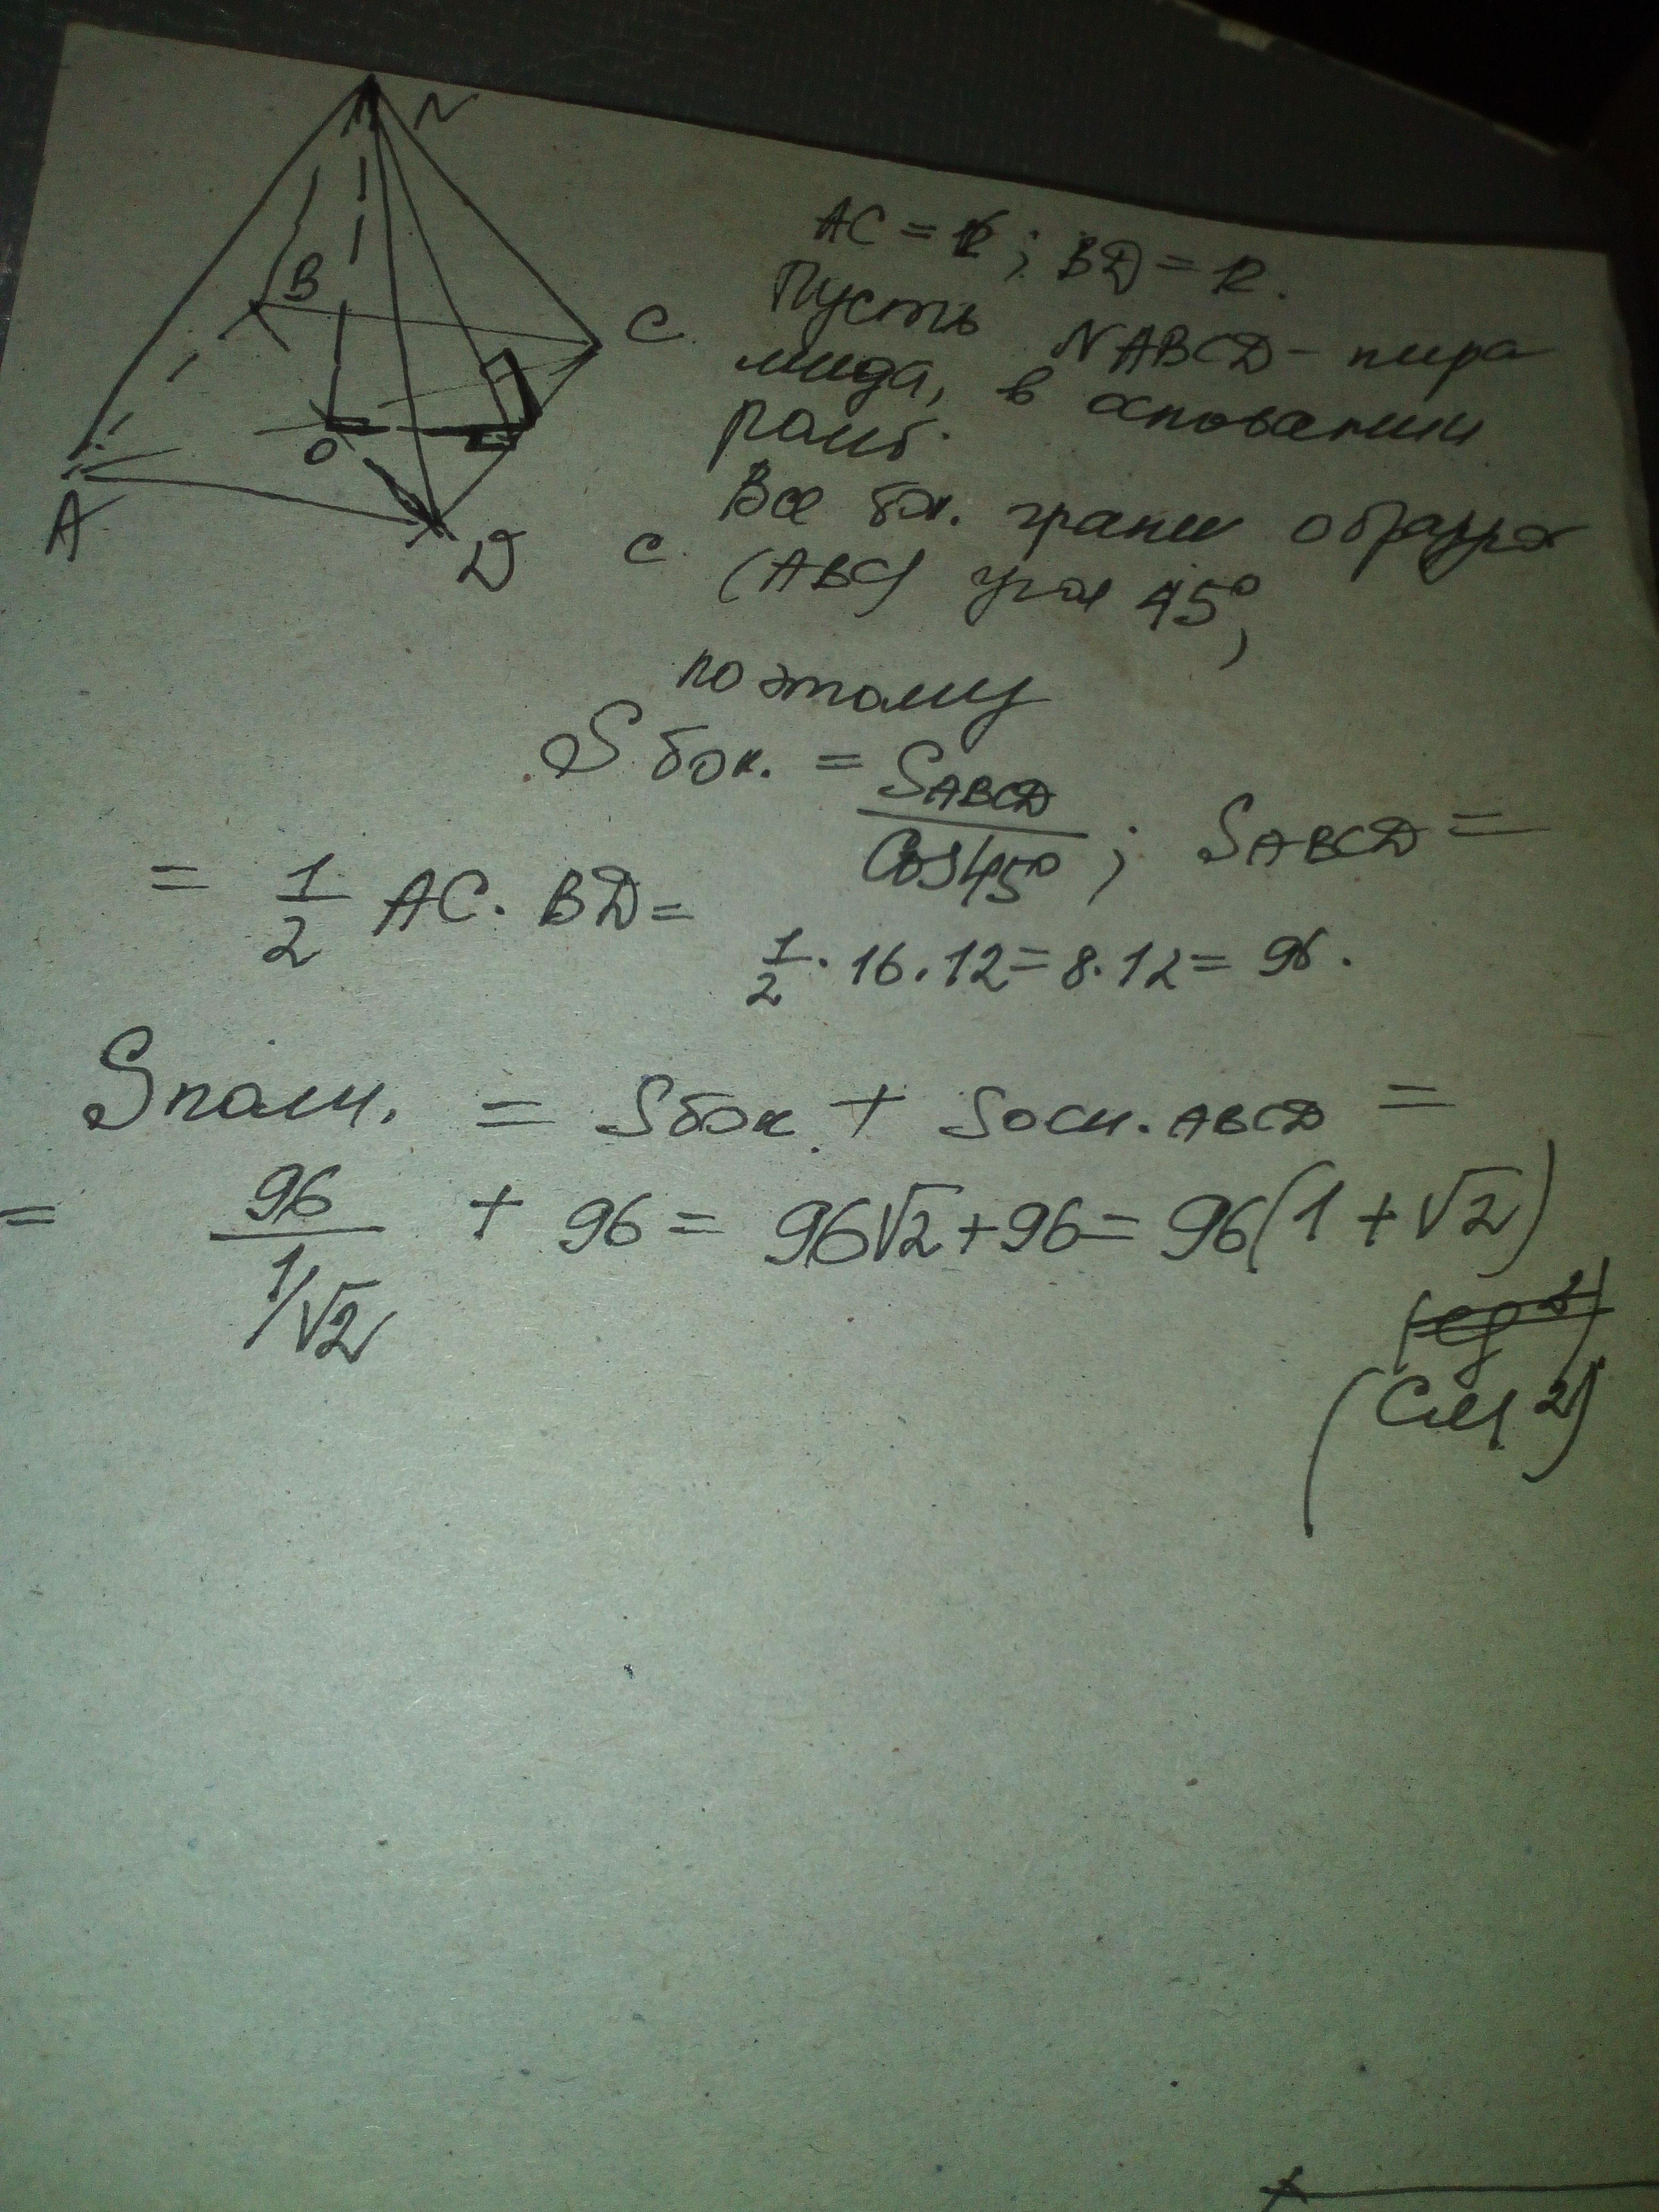 N
B
C
O
A
D
AC = 16; BD = 12.
Пусть NABCD - пира
мида, в основании
ромб.
Все бок. грани образуют
с (ABC) угол 45°,
поэтому
S бок. = SABCD / cos45°; SABCD =
= 1/2 AC · BD =
1/2 · 16 · 12 = 8 · 12 = 96.
Sполн. = Sбок. + Sосн. ABCD =
= 96 / 1/√2 + 96 = 96√2 + 96 = 96(1 + √2)
(см²)